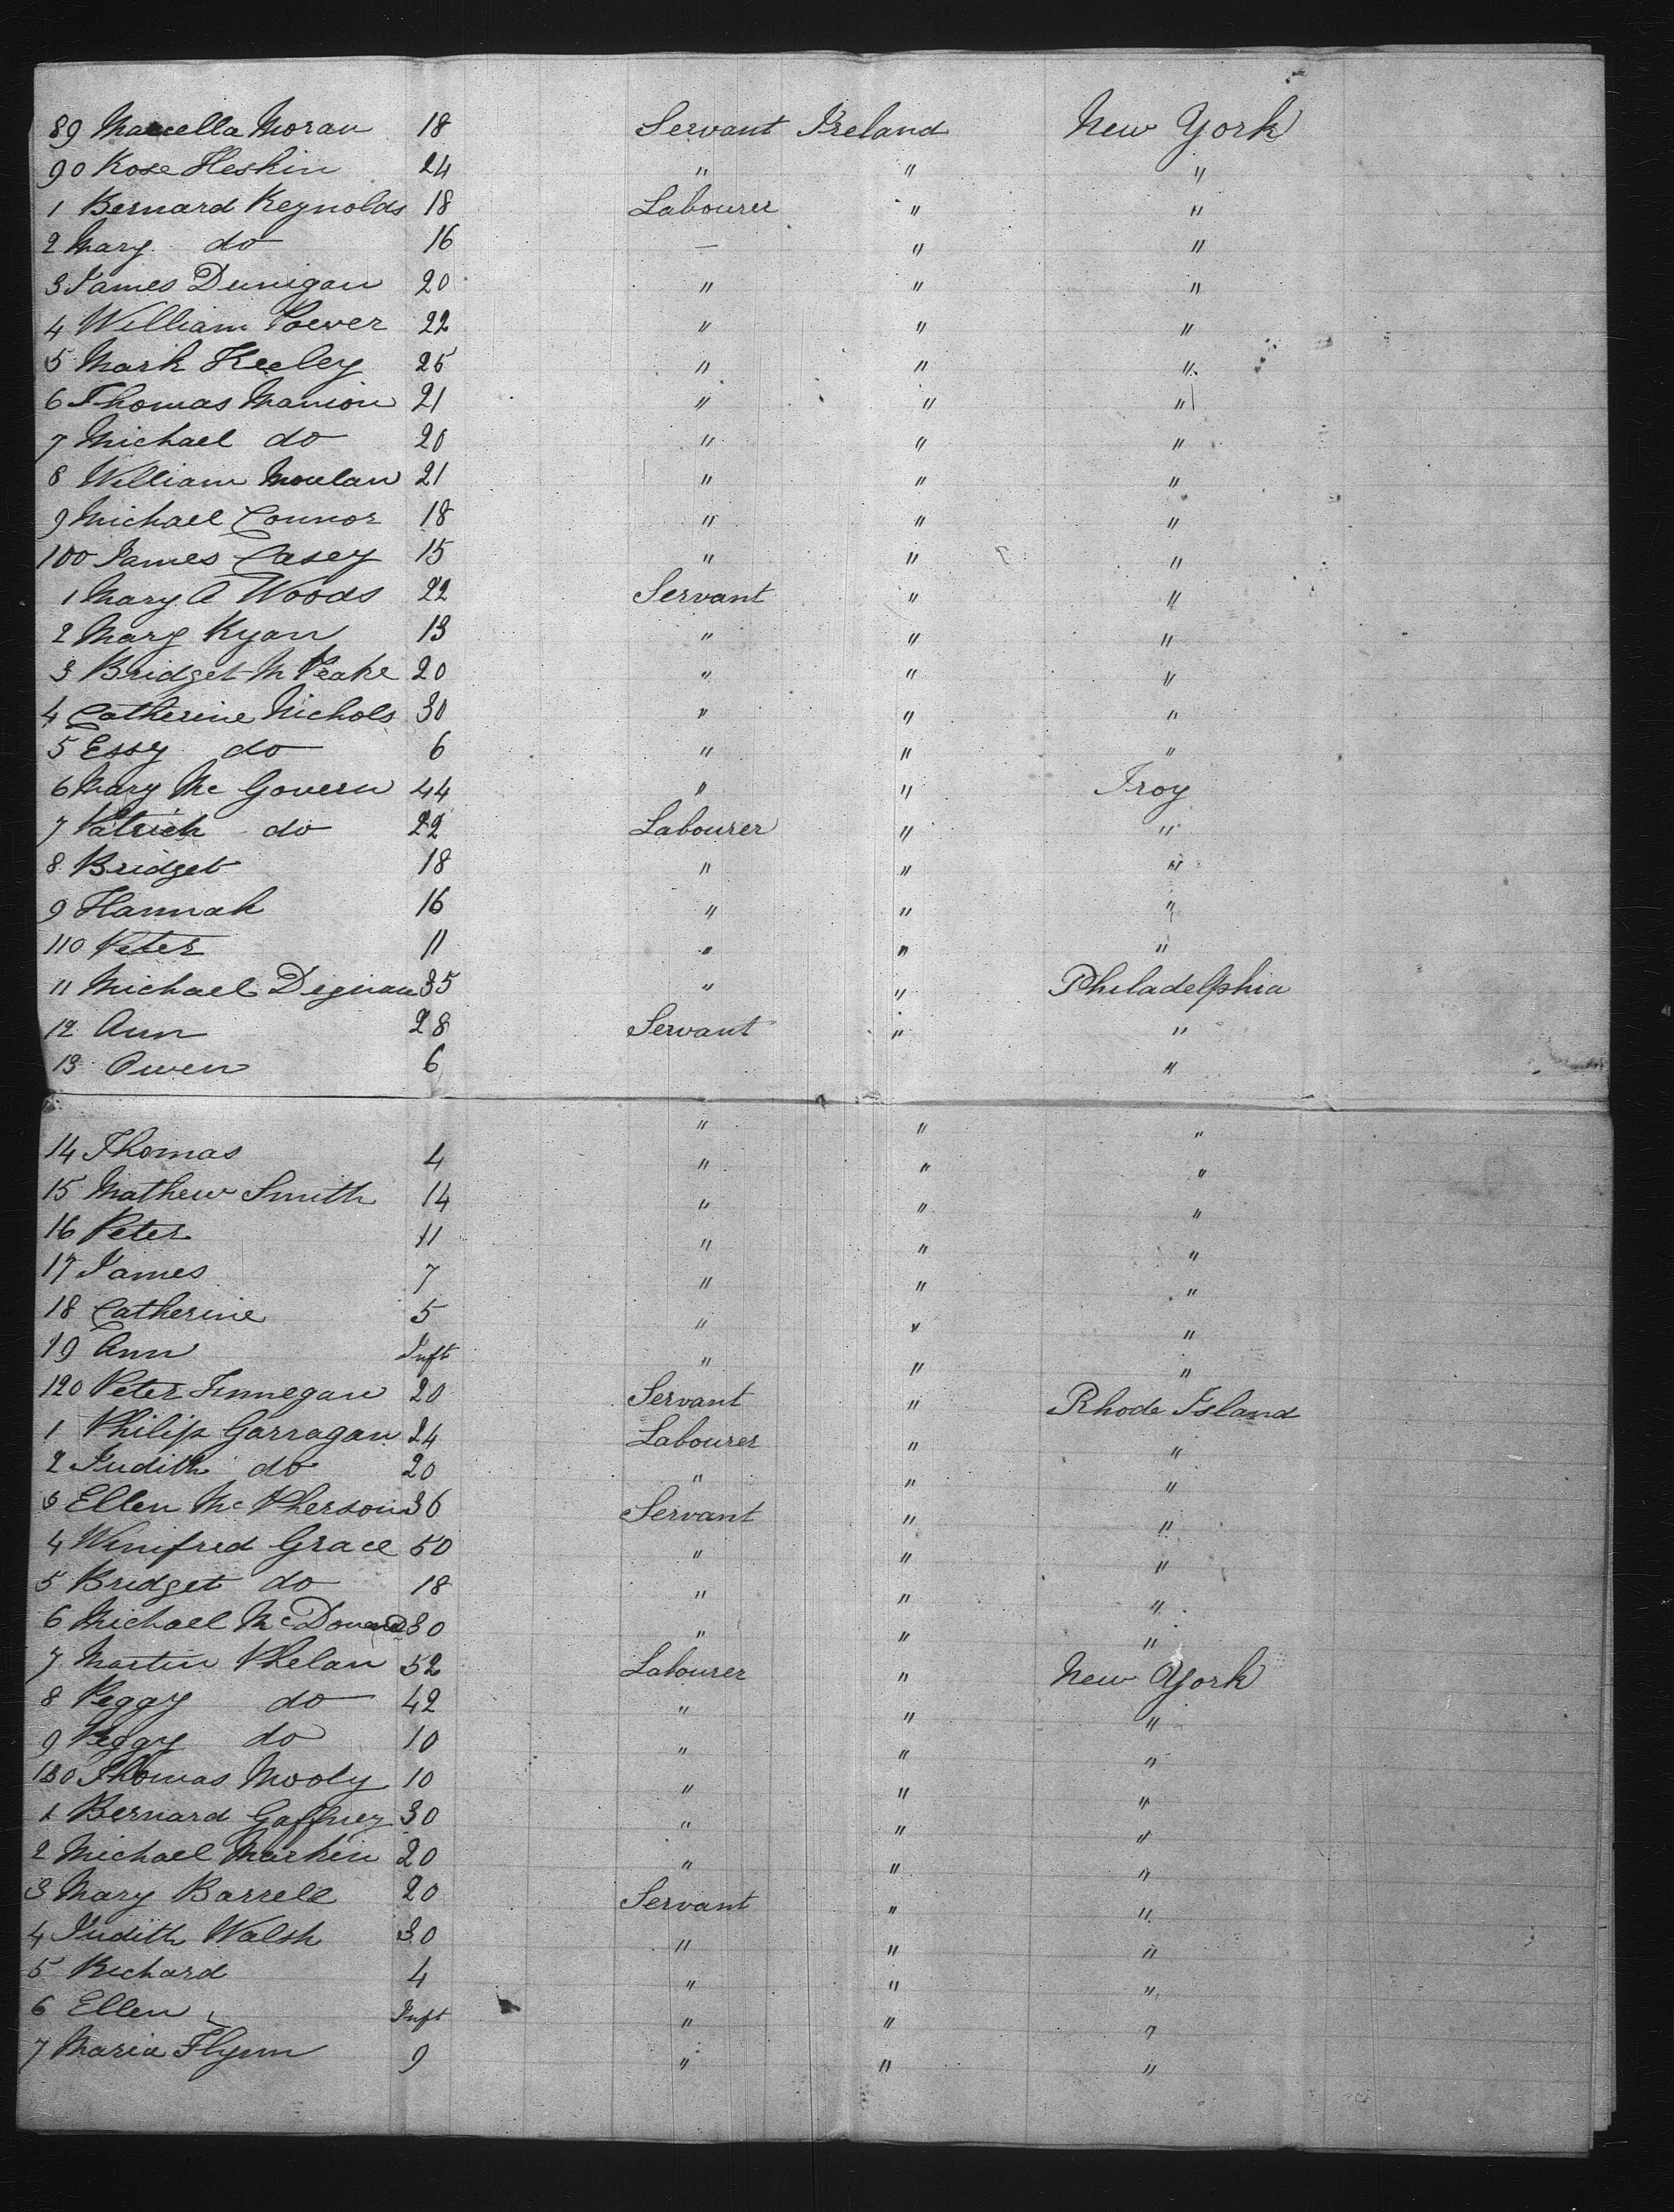 89 Marcella Moran 18 Servant Ireland New York
90 Rose Heskin 24 " " "
1 Bernard Reynolds 18 Labourer " "
2 Mary do 16 — " "
3 James Dunigan 20 " " "
4 William Power 22 " " "
5 Mark Keeley 25 " " "
6 Thomas Manion 21 " " "
7 Michael do 20 " " "
8 William Moulan 21 " " "
9 Michael Connor 18 " " "
100 James Casey 15 " " "
1 Mary A Woods 22 Servant " "
2 Mary Ryan 13 " " "
3 Bridget M Peake 20 " " "
4 Catherine Nichols 30 " " "
5 Essy do 6 " " "
6 Mary Mc Govern 44 " " Troy
7 Patrick do 22 Labourer " "
8 Bridget 18 " " "
9 Hannah 16 " " "
110 Peter 11 " " "
11 Michael Dignan 35 " " Philadelphia
12 Ann 28 Servant " "
13 Owen 6 "
" " "
14 Thomas 4 " " "
15 Mathew Smith 14 " " "
16 Peter 11 " " "
17 James 7 " " "
18 Catherine 5 " " "
19 Ann Inft " " "
120 Peter Finnegan 20 Servant " Rhode Island
1 Philip Garragan 24 Labourer " "
2 Judith do 20 " " "
3 Ellen Mc Pherson 36 Servant " "
4 Winifred Grace 50 " " "
5 Bridget do 18 " " "
6 Michael 30 " " "
7 Martin Phelan 52 Labourer " New York
8 Peggy do 42 " " "
9 Peggy do 10 " " "
130 Thomas Mooly 10 " " "
1 Bernard Gaffney 30 " " "
2 Michael Markin 20 " " "
3 Mary Barrell 20 Servant " "
4 Judith Walsh 30 " " "
5 Richard 4 " " "
6 Ellen Inft " " "
7 Maria Flynn 9 " " "